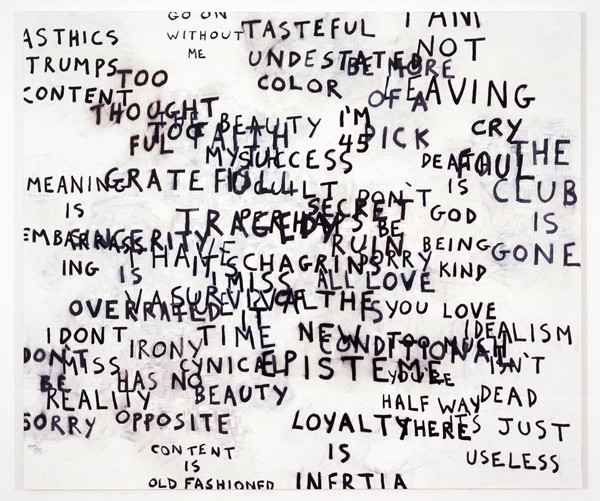 GO ON
WITHOUT
ME
TASTEFUL
UNDESTATED
COLOR
I AM
NOT
LEAVING
BE MORE
OF A
DICK
ASTHICS
TRUMPS
CONTENT
TOO
THOUGHT
FUL
BEAUTY
FAITH
I'M
45
CRY
FOUL
THE
CLUB
IS
GONE
MY
SUCCESS
DEATH
IS
GOD
MEANING
IS
EMBARRASS
ING
GRATEFUL
GUILT
DON'T
BE
SORRY
SECRET
RUIN
TRAGEDY
PERHAPS
BEING
KIND
SINCERITY
IS
OVERRATED
I HAVE
CHAGRIN
I MISS
ALL LOVE
IS
SURVIVAL
THE
YOU LOVE
IDEALISM
ISN'T
DEAD
IT'S JUST
USELESS
I DON'T
MISS
REALITY
IRONY
HAS NO
OPPOSITE
TIME
CYNICAL
BEAUTY
NEW
EPISTEME
CONDITIONAL
TOO MUCH
YOU'RE
HALF WAY
THERE
DON'T
BE
SORRY
CONTENT
IS
OLD FASHIONED
LOYALTY
IS
INERTIA